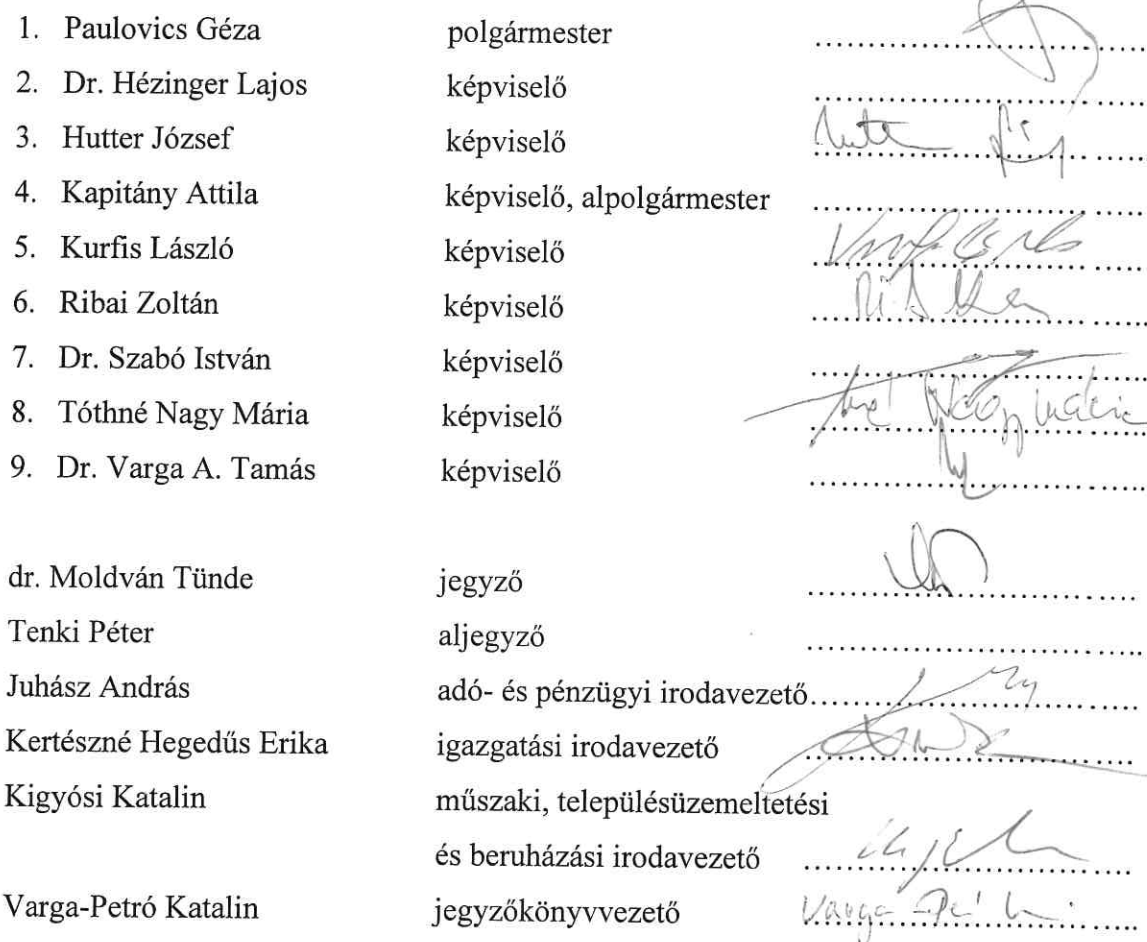 1. Paulovics Géza polgármester ..............................
2. Dr. Hézinger Lajos képviselő ..............................
3. Hutter József képviselő ..............................
4. Kapitány Attila képviselő, alpolgármester ..............................
5. Kurfis László képviselő ..............................
6. Ribai Zoltán képviselő ..............................
7. Dr. Szabó István képviselő ..............................
8. Tóthné Nagy Mária képviselő .............................. Nagy Mária
9. Dr. Varga A. Tamás képviselő ..............................
dr. Moldván Tünde jegyző ..............................
Tenki Péter aljegyző ..............................
Juhász András adó- és pénzügyi irodavezető ..............................
Kertészné Hegedűs Erika igazgatási irodavezető ..............................
Kigyósi Katalin műszaki, településüzemeltetési
és beruházási irodavezető ..............................
Varga-Petró Katalin jegyzőkönyvvezető .............................. Varga